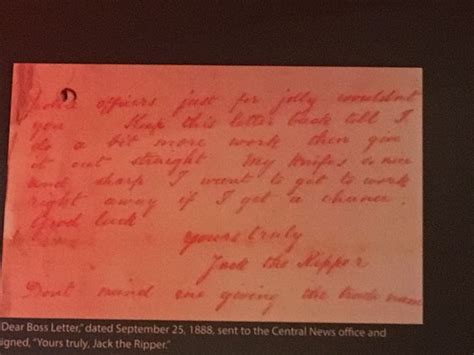 police officers just for jolly wouldnt
you Keep this letter back till I
do a bit more work then give
it out straight My Knifes so nice
and sharp I want to get to work
right away if I get a chance.
Good luck
yours truly
Jack the Ripper
Dont mind me giving the trade name
Dear Boss Letter," dated September 25, 1888, sent to the Central News office and
igned, "Yours truly, Jack the Ripper."